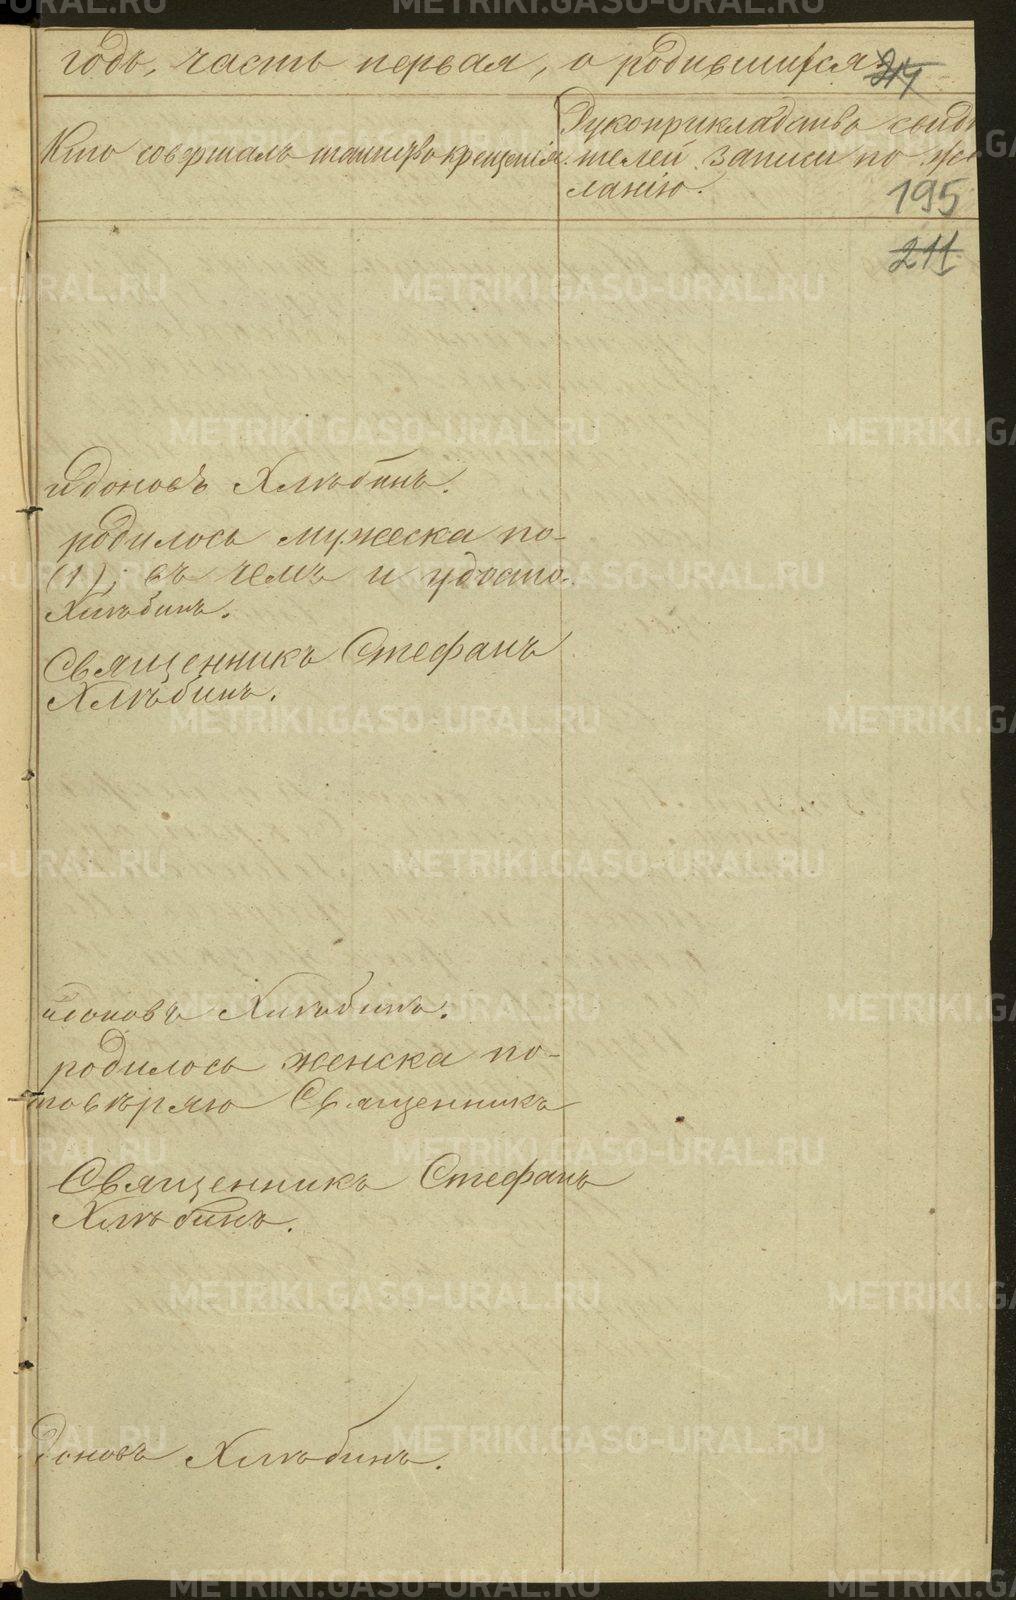 годъ, часть первая, о родившихся
Кто совершалъ таинство крещенія.
Рукоприкладство свидѣ
телей записи по же
ланію.
195
211
идоновъ Хлѣбинъ.
родилось мужеска по-
(1); въ чемъ и удосто-
Хлѣбинъ.
Священникъ Стефанъ
Хлѣбинъ.
идоновъ Хлѣбинъ.
родилось женска по-
товѣряю Священникъ
Священникъ Стефанъ
Хлѣбинъ.
доновъ Хлѣбинъ.
METRIKI.GASO-URAL.RU